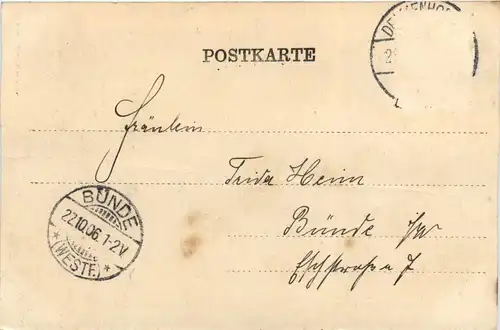 POSTKARTE
Fräulein
Frida Heim
Bünde i/W
Eschstrasse 7
BÜNDE
22.10.06. 1-2V.
* (WESTF.) *